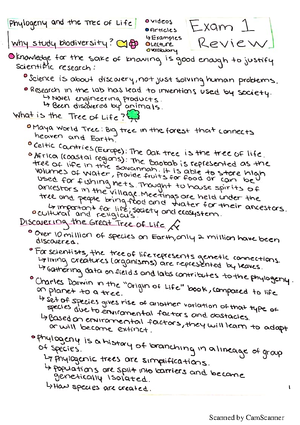 Phylogeny and the Tree of Life
Why study biodiversity?
Videos
Articles
Examples
Lecture
Vocabulary
Exam 1
Review
Knowledge for the sake of knowing is good enough to justify
scientific research:
Science is about discovery, not just solving human problems.
Research in the lab has lead to inventions used by society.
↳ Novel engineering products
↳ Been discovered by animals.
What is the Tree of Life?
Maya World Tree: Big tree in the forest that connects
heaven and Earth.
Celtic Cantries (Europe): The Oak tree is the tree of life
Africa (coastal regions): The Baobab is represented as the
tree of life in the Savannah. It is able to store high
volumes of water, Provide fruits for food or can be
used for fishing nets. Thought to house spirits of
ancestors in the village. Meetings are held under the
tree and people bring food and water for their ancestors.
↳ Important for life, society and ecosystem.
Cultural and religious.
Discovering the Great Tree of Life
Over 10 million of species on Earth, only 2 million have been
discovered.
For scientists, the tree of life represents genetic connections.
↳ living creatures (organisms) are represented by leaves.
↳ Gathering data on fields and labs contributes to the phylogeny.
Charles Darwin in the "Origin of Life" book, compared to life
on planet to a tree.
↳ Set of species gives rise of another variation of that type of
species due to environmental factors and obstacles.
↳ Based on environmental factors, they will learn to adapt
or will become extinct.
Phylogeny is a history of branching in a lineage of group
of species.
↳ Phylogenic trees are simplifications.
↳ Populations are split into barriers and become
genetically isolated.
↳ How species are created.
Scanned by CamScanner